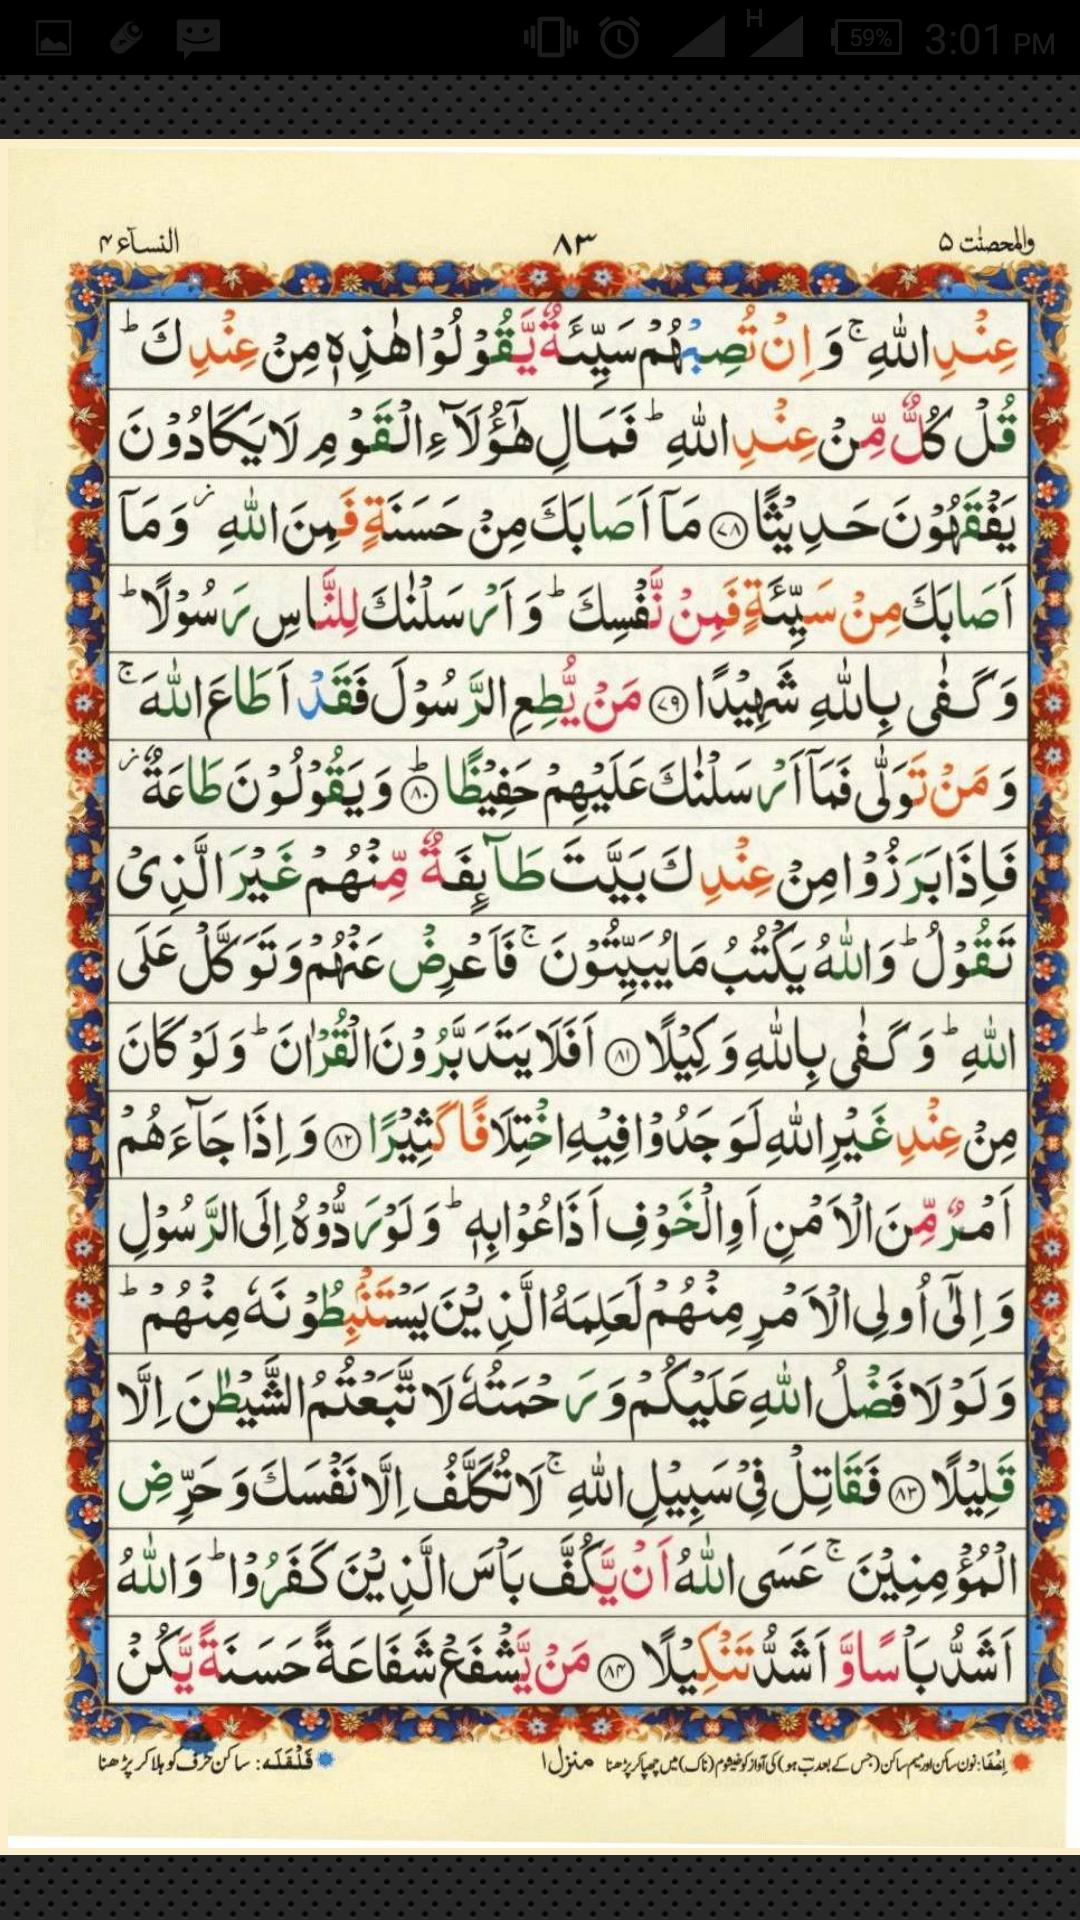 H 59% 3:01 PM
والمحصنٰت ۵ ۸۳ النسآء ۴
عِنْدِ اللّٰهِ ۚ وَ اِنْ تُصِبْهُمْ سَیِّئَةٌ یَّقُوْلُوْا هٰذِهٖ مِنْ عِنْدِكَ ؕ
قُلْ كُلٌّ مِّنْ عِنْدِ اللّٰهِ ؕ فَمَالِ هٰۤؤُلَآءِ الْقَوْمِ لَا یَكَادُوْنَ
یَفْقَهُوْنَ حَدِیْثًا ﴿۷۸﴾ مَاۤ اَصَابَكَ مِنْ حَسَنَةٍ فَمِنَ اللّٰهِ ؗ وَ مَاۤ
اَصَابَكَ مِنْ سَیِّئَةٍ فَمِنْ نَّفْسِكَ ؕ وَ اَرْسَلْنٰكَ لِلنَّاسِ رَسُوْلًا ؕ
وَ كَفٰی بِاللّٰهِ شَهِیْدًا ﴿۷۹﴾ مَنْ یُّطِعِ الرَّسُوْلَ فَقَدْ اَطَاعَ اللّٰهَ ۚ
وَ مَنْ تَوَلّٰی فَمَاۤ اَرْسَلْنٰكَ عَلَیْهِمْ حَفِیْظًا ﴿ؕ۸۰﴾ وَ یَقُوْلُوْنَ طَاعَةٌ ؗ
فَاِذَا بَرَزُوْا مِنْ عِنْدِكَ بَیَّتَ طَآىِٕفَةٌ مِّنْهُمْ غَیْرَ الَّذِیْ
تَقُوْلُ ؕ وَ اللّٰهُ یَكْتُبُ مَا یُبَیِّتُوْنَ ۚ فَاَعْرِضْ عَنْهُمْ وَ تَوَكَّلْ عَلَی
اللّٰهِ ؕ وَ كَفٰی بِاللّٰهِ وَكِیْلًا ﴿۸۱﴾ اَفَلَا یَتَدَبَّرُوْنَ الْقُرْاٰنَ ؕ وَ لَوْ كَانَ
مِنْ عِنْدِ غَیْرِ اللّٰهِ لَوَجَدُوْا فِیْهِ اخْتِلَافًا كَثِیْرًا ﴿۸۲﴾ وَ اِذَا جَآءَهُمْ
اَمْرٌ مِّنَ الْاَمْنِ اَوِ الْخَوْفِ اَذَاعُوْا بِهٖ ؕ وَ لَوْ رَدُّوْهُ اِلَی الرَّسُوْلِ
وَ اِلٰۤی اُولِی الْاَمْرِ مِنْهُمْ لَعَلِمَهُ الَّذِیْنَ یَسْتَنْۢبِطُوْنَهٗ مِنْهُمْ ؕ
وَ لَوْ لَا فَضْلُ اللّٰهِ عَلَیْكُمْ وَ رَحْمَتُهٗ لَاتَّبَعْتُمُ الشَّیْطٰنَ اِلَّا
قَلِیْلًا ﴿۸۳﴾ فَقَاتِلْ فِیْ سَبِیْلِ اللّٰهِ ۚ لَا تُكَلَّفُ اِلَّا نَفْسَكَ وَ حَرِّضِ
الْمُؤْمِنِیْنَ ۚ عَسَی اللّٰهُ اَنْ یَّكُفَّ بَاْسَ الَّذِیْنَ كَفَرُوْا ؕ وَ اللّٰهُ
اَشَدُّ بَاْسًا وَّ اَشَدُّ تَنْكِیْلًا ﴿۸۴﴾ مَنْ یَّشْفَعْ شَفَاعَةً حَسَنَةً یَّكُنْ
اِخْفَا: نون ساکن اور میم ساکن (جس کے بعد ب ہو) کی آواز کو خیشوم (ناک) میں چھپا کر پڑھنا منزل ۱ قَلْقَلَه: ساکن حرف کو ہلا کر پڑھنا